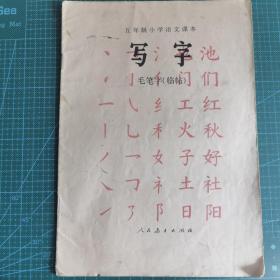 五年制小学语文课本
写字
毛笔字(临帖)
氵 池
门 们
纟 工 红
乚 禾 火 秋
女 子 好
礻 土 社
阝 日 阳
人民教育出版社